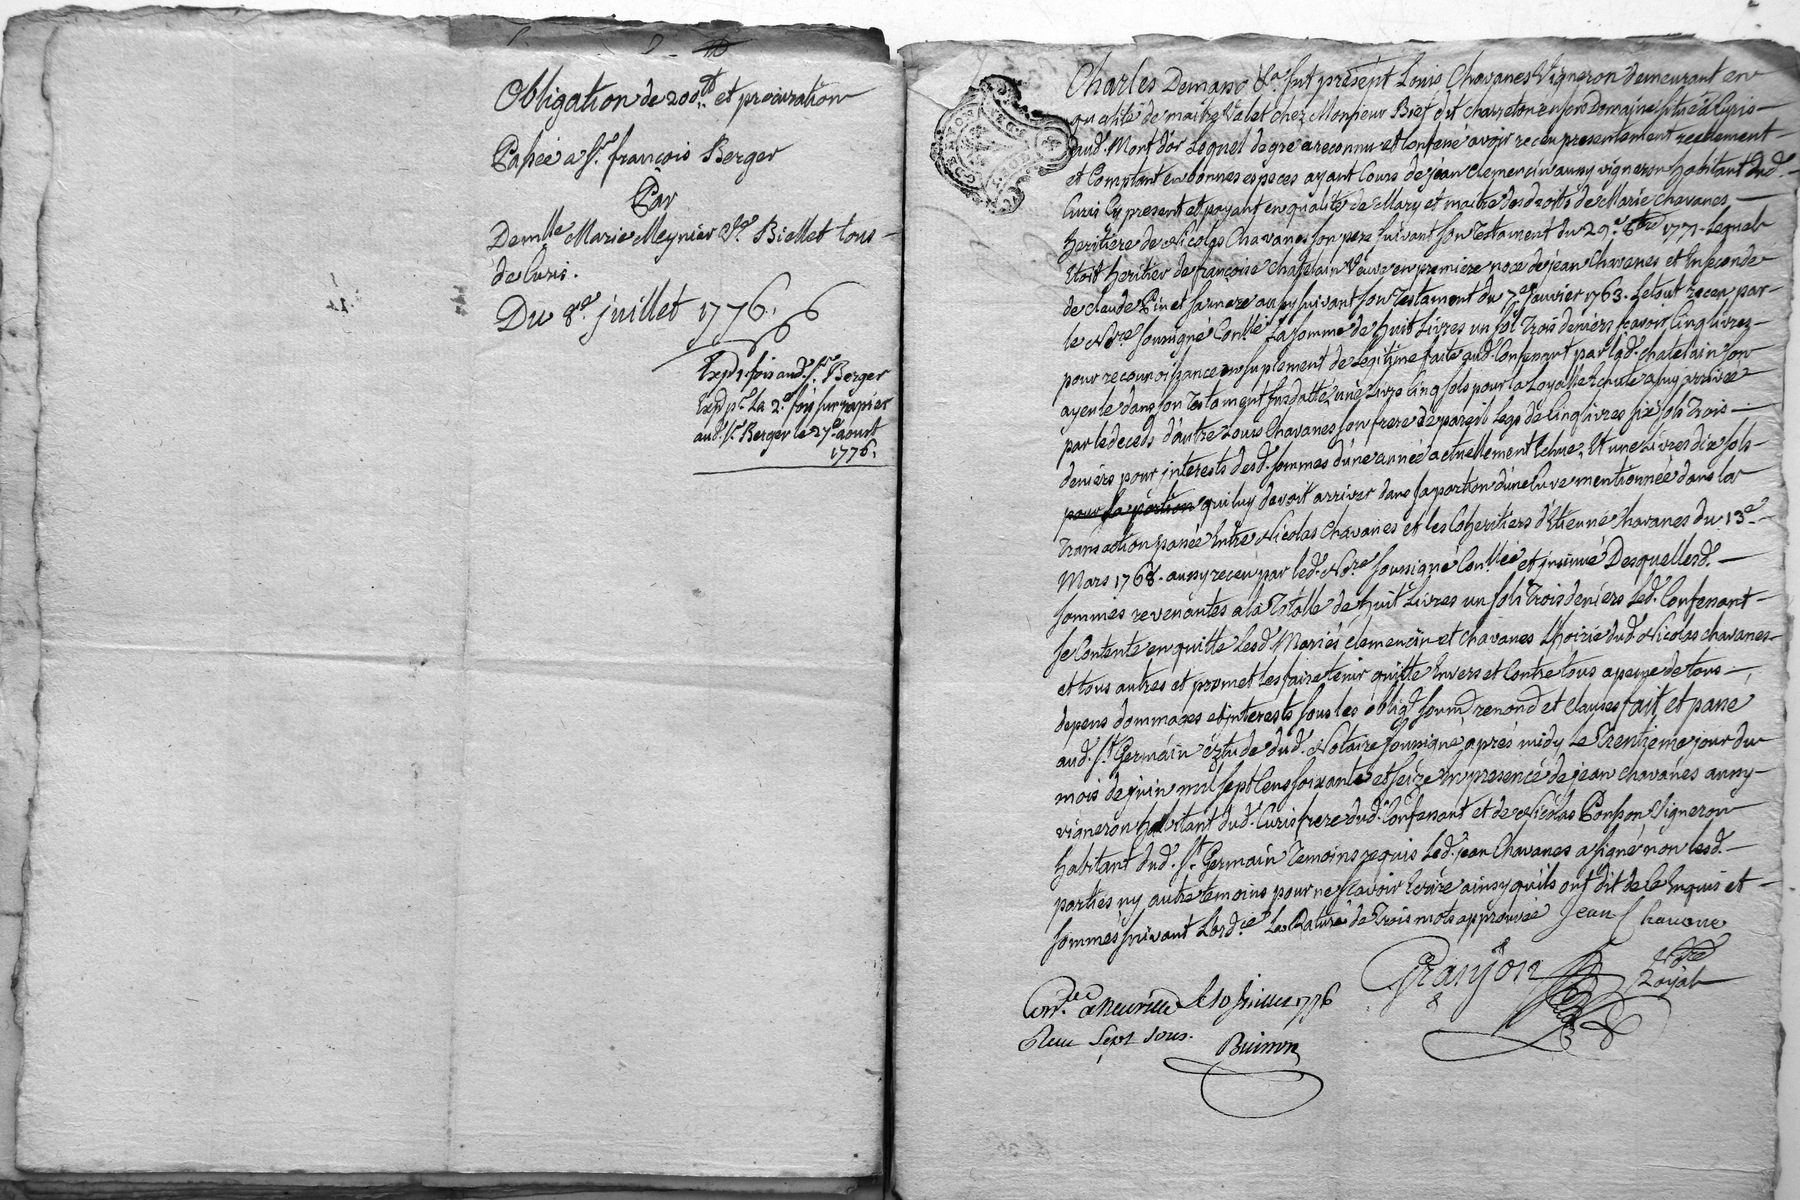 Obligation de 200tt et procuration
Passée a Sr. françois Berger
Par
Demlle Marie Meynier Vve. Biellet tous
de Curis.
Du 8e. juillet 1776.
Exp. 1. fois aud. Sr. Berger
Exp. pr. la 2e. fois sur papier
aud. Sr. Berger le 27e. aoust
1776.
fut présent Louis Chavanes Vigneron demeurant en
qualité de maitre Valet chez Monsieur Brct dit charreton en son Domaine situé a Curis
aud. Mont d'or Lequel de gré a reconnu et Confessé avoir receu presentement reellement
et Comptant en bonnes especes ayant Cours de jéan Clemencin aussy vigneron habitant dud.
Curis Cy present et payant en qualité de Mary et maitre des droits de Marie Chavanes
heritière de Nicolas Chavanes son pere suivant son Testament du 29e. 8bre 1771. Lequel
Etoit heritier de françoise chatelain Veuve en premiere noce de jéan Chavanes et En seconde
de claude Pin et sa mere aussy suivant son Testament du 7e. janvier 1763. Le tout receu par
le Nre. soussigné Conllé La somme de huit Livres un sol Trois deniers savoir Cinq Livres
pour reconnoissance en suplement de Légitime faite aud. Confessant par lad. chatelain son
ayeule dans son Testament susdatté, une Livre Cinq sols pour La Loyalle Echute a luy arrivée
par le deceds d'autre Louis Chavanes son frere de pareils Legs de Cinq livres six sols Trois
deniers pour interests desd. sommes d'une année actuellement Echue, Et une Livres dix sols
pour sa portion qui luy devoit arriver dans sa portion d'une Cuve mentionnée dans la
Transaction passée Entre Nicolas Chavanes et les Coheritiers d'Etienne Chavanes du 13e.
Mars 1768. aussy receu par led. Nre. soussigné Conllée et insinué Desquelles d.
sommes revenantes a la Totalle de huit Livres un sols Trois deniers Led. Confessant
se Contente en quitte Lesd. Mariés clemencin et chavanes L'hoirie dud. Nicolas chavanes
et tous autres et promet les faire tenir quitte Envers et Contre tous a peine de tous
depens dommages et interests sous les obligd. soumd. renond et clauses fait et passé
aud. St. Germain éztude dud. Notaire soussigné après midy Le Trentième jour du
mois de juin mil sept Cens soixante et seize En presence de jean chavanes aussy
vigneron habitant dud. Curis frere dud. Confessant et de Nicolas Ponson Vigneron
habitant dud. St. Germain Temoins requis Led. jean Chavanes a signé non lesd.
parties ny autre temoins pour ne sçavoir Ecrire ainsy quils ont dit de ce Enquis et
sommés suivant Lordce. La Rature de Trois mots approuvée Jean Chavane
Granjon Nre
Royal
Conlé a Neuville le 10 Juillet 1776
Reçu Sept Sous.
Buisson